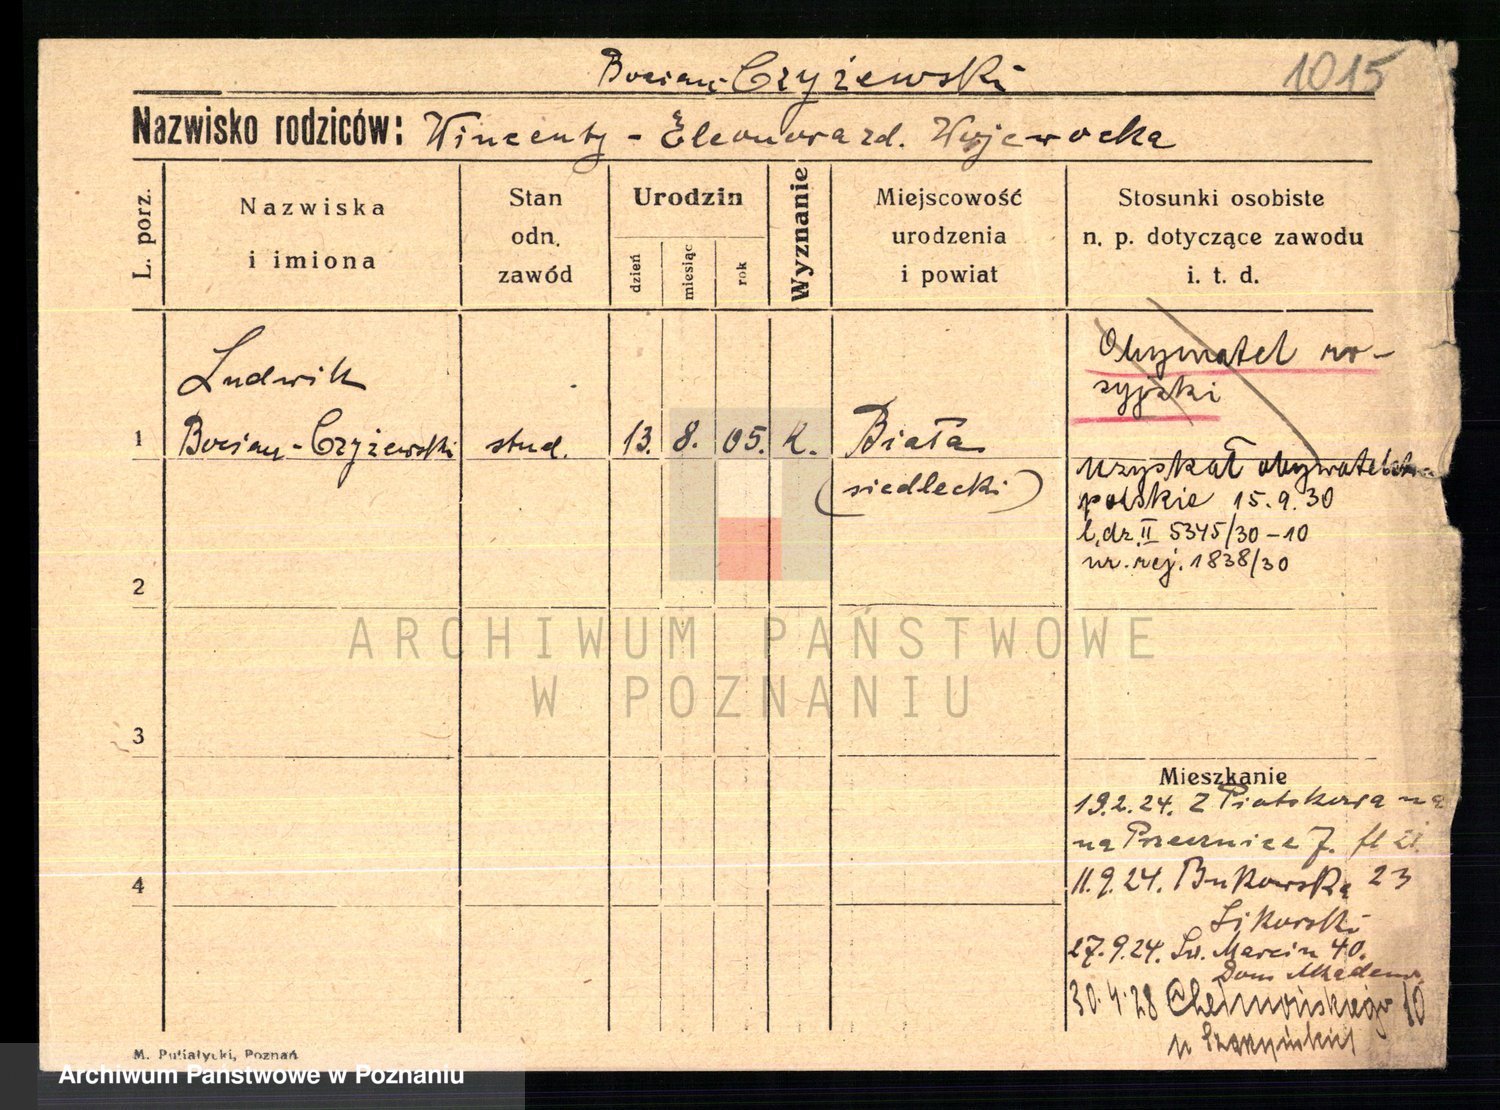 Bocian-Czyżewski
1015
Nazwisko rodziców: Wincenty - Eleonora zd. Wyjewocka
L. porz.
Nazwiska
i imiona
Stan
odn.
zawód
Urodzin
dzień
miesiąc
rok
Wyznanie
Miejscowość
urodzenia
i powiat
Stosunki osobiste
n. p. dotyczące zawodu
i. t. d.
Obywatel ro-
syjski
Ludwik
1 Bocian-Czyżewski stud. 13. 8. 05. k. Biała
(siedlecki)
uzyskał
polskie 15.9.30
l. dz. II 5345/30-10
nr. rej. 1838/30
2
ARCHIWUM PAŃSTWOWE
W POZNANIU
3
Mieszkanie
19.2.24. Z Piotrkowa na
na Przecznica 7.
4
11.9.24. Bukowska 23
Sikorski
27.9.24. Św. Marcin 40.
Dom Akadem.
30.4.28 Chełmońskiego 10
u
M. Putiatycki, Poznań
Archiwum Państwowe w Poznaniu